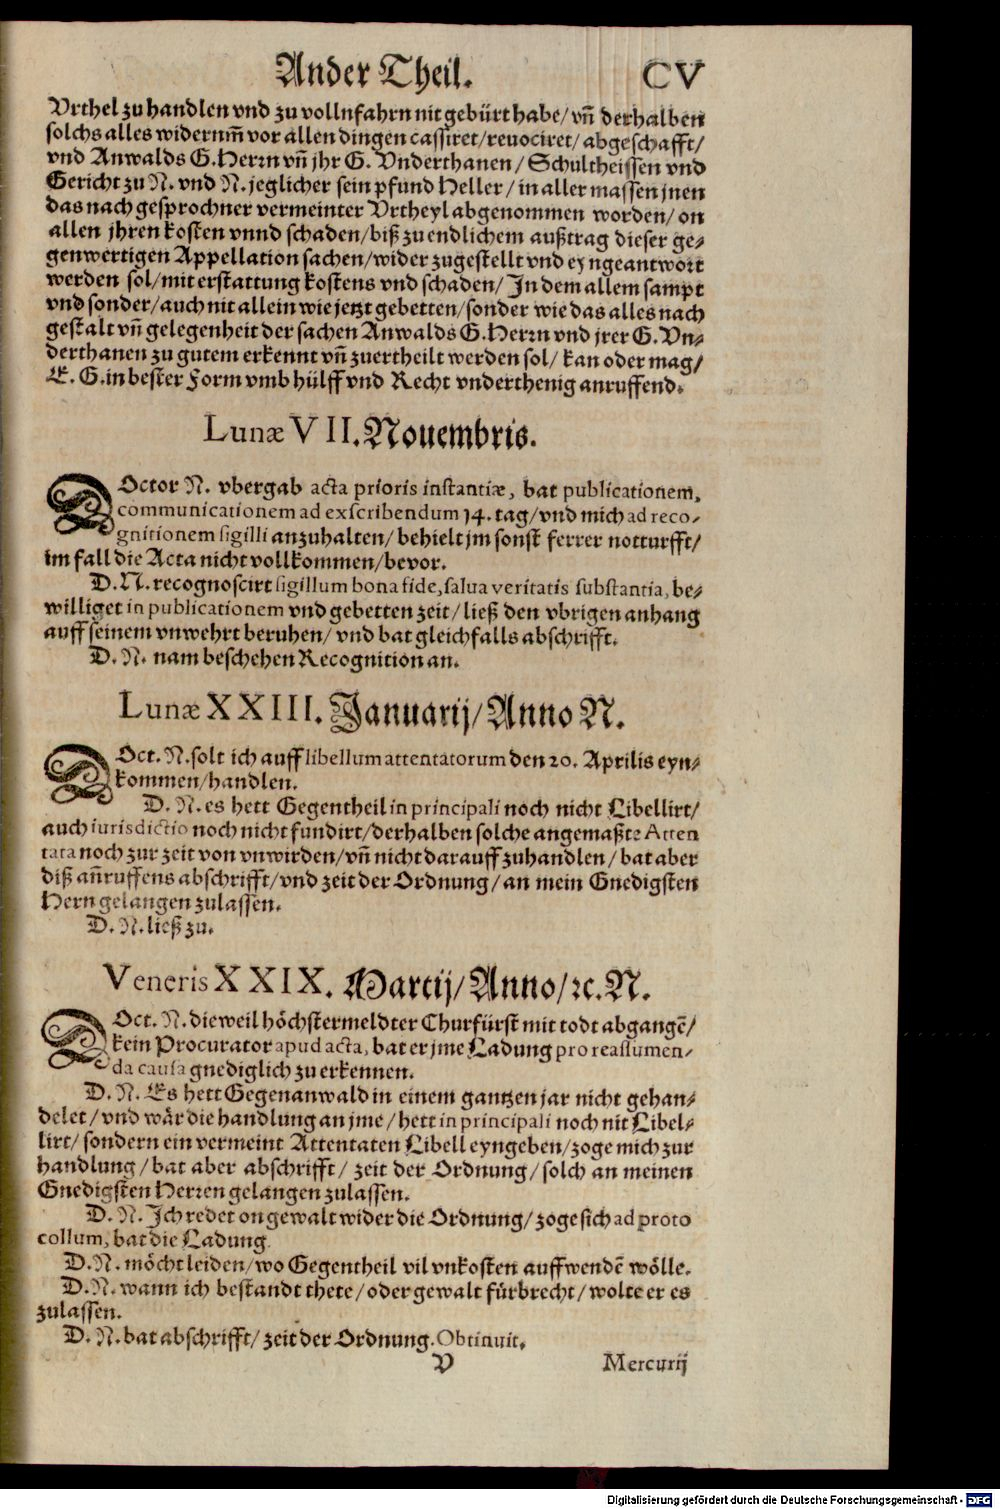 Ander Theil. CV
Vrthel zu handlen vnd zu vollnfahrn nit gebürt habe/ vñ derhalben
solchs alles widerum̃ vor allen dingen cassiret/ reuociret/ abgeschafft/
vnd Anwalds G. Herrn vñ jhr G. Vnderthanen/ Schultheissen vnd
Gericht zu N. vnd N. jeglicher sein pfund Heller/ in aller massen jnen
das nach gesprochner vermeinter Vrtheyl abgenommen worden/ on
allen jhren kosten vnnd schaden/ biß zu endlichem außtrag dieser ge-
genwertigen Appellation sachen/ wider zugestellt vnd eyngeantwort
werden sol/ mit erstattung kostens vnd schaden/ In dem allem sampt
vnd sonder/ auch nit allein wie jetzt gebetten/ sonder wie das alles nach
gestalt vñ gelegenheit der sachen Anwalds G. Herrn vnd jrer G. Vn-
derthanen zu gutem erkennt vñ zuertheilt werden sol/ kan oder mag/
E. G. in bester Form vmb hülff vnd Recht vnderthenig anruffend.
Lunæ VII. Nouembris.
DOctor N. vbergab acta prioris instantiæ, bat publicationem,
communicationem ad exscribendum 14. tag/ vnd mich ad reco-
gnitionem sigilli anzuhalten/ behielt jm sonst ferrer notturfft/
im fall die Acta nicht vollkommen/ bevor.
D. N. recognoscirt sigillum bona fide, salua veritatis substantia, be-
williget in publicationem vnd gebetten zeit/ ließ den vbrigen anhang
auff seinem vnwehrt beruhen/ vnd bat gleichfalls abschrifft.
D. N. nam beschehen Recognition an.
Lunæ XXIII. Januarij/ Anno N.
DOct. N. solt ich auff libellum attentatorum den 20. Aprilis eyn-
kommen/ handlen.
D. N. es hett Gegentheil in principali noch nicht Libellirt/
auch iurisdictio noch nicht fundirt/ derhalben solche angemaßte Atten
tata noch zur zeit von vnwirden/ vñ nicht darauff zuhandlen/ bat aber
diß añruffens abschrifft/ vnd zeit der Ordnung/ an mein Gnedigsten
Hern gelangen zulassen.
D. N. ließ zu.
Veneris XXIX. Martij/ Anno/ ꝛc. N.
DOct. N. dieweil höchstermeldter Churfürst mit todt abgangẽ/
kein Procurator apud acta, bat er jme Ladung pro reassumen-
da causa gnediglich zu erkennen.
D. N. Es hett Gegenanwald in einem gantzen jar nicht gehan-
delet/ vnd wär die handlung an jme/ hett in principali noch nit Libel-
lirt/ sondern ein vermeint Attentaten Libell eyngeben/ zoge mich zur
handlung/ bat aber abschrifft/ zeit der Ordnung/ solch an meinen
Gnedigsten Herren gelangen zulassen.
D. N. Ich redet on gewalt wider die Ordnung/ zoge sich ad proto
collum, bat die Ladung.
D. N. möcht leiden/ wo Gegentheil vil vnkosten auffwendẽ wölle.
D. N. wann ich bestandt thete/ oder gewalt fürbrecht/ wolte er es
zulassen.
D. N. bat abschrifft/ zeit der Ordnung. Obtinuit.
V Mercurij
Digitalisierung gefördert durch die Deutsche Forschungsgemeinschaft - DFG